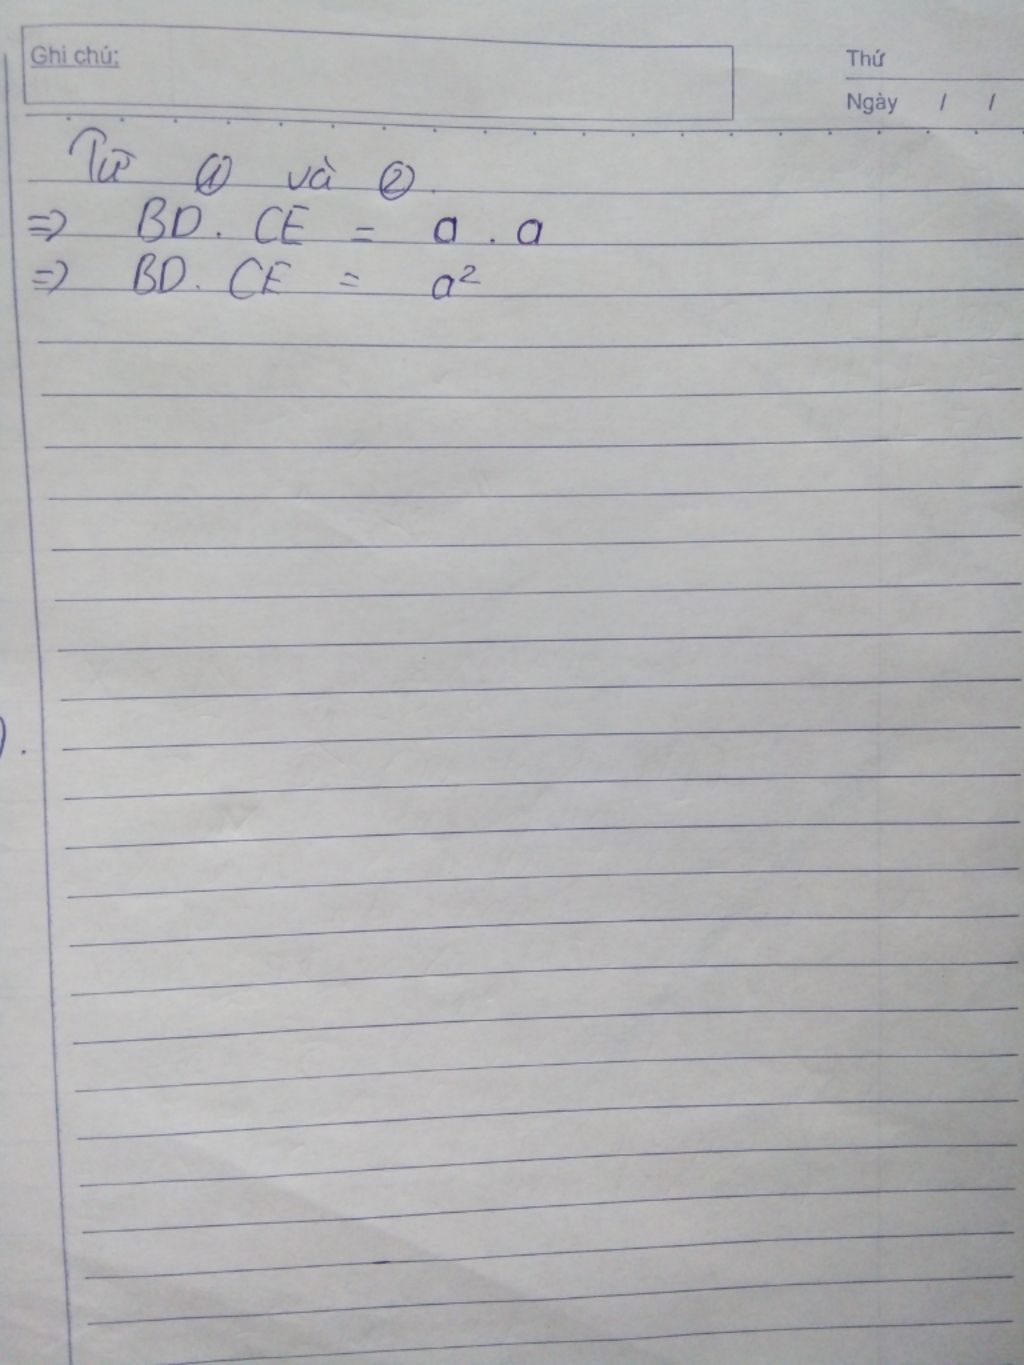 Ghi chú:
Thứ
Ngày / /
Từ ① và ②.
=> BD. CE = a . a
=> BD. CE = a²
).